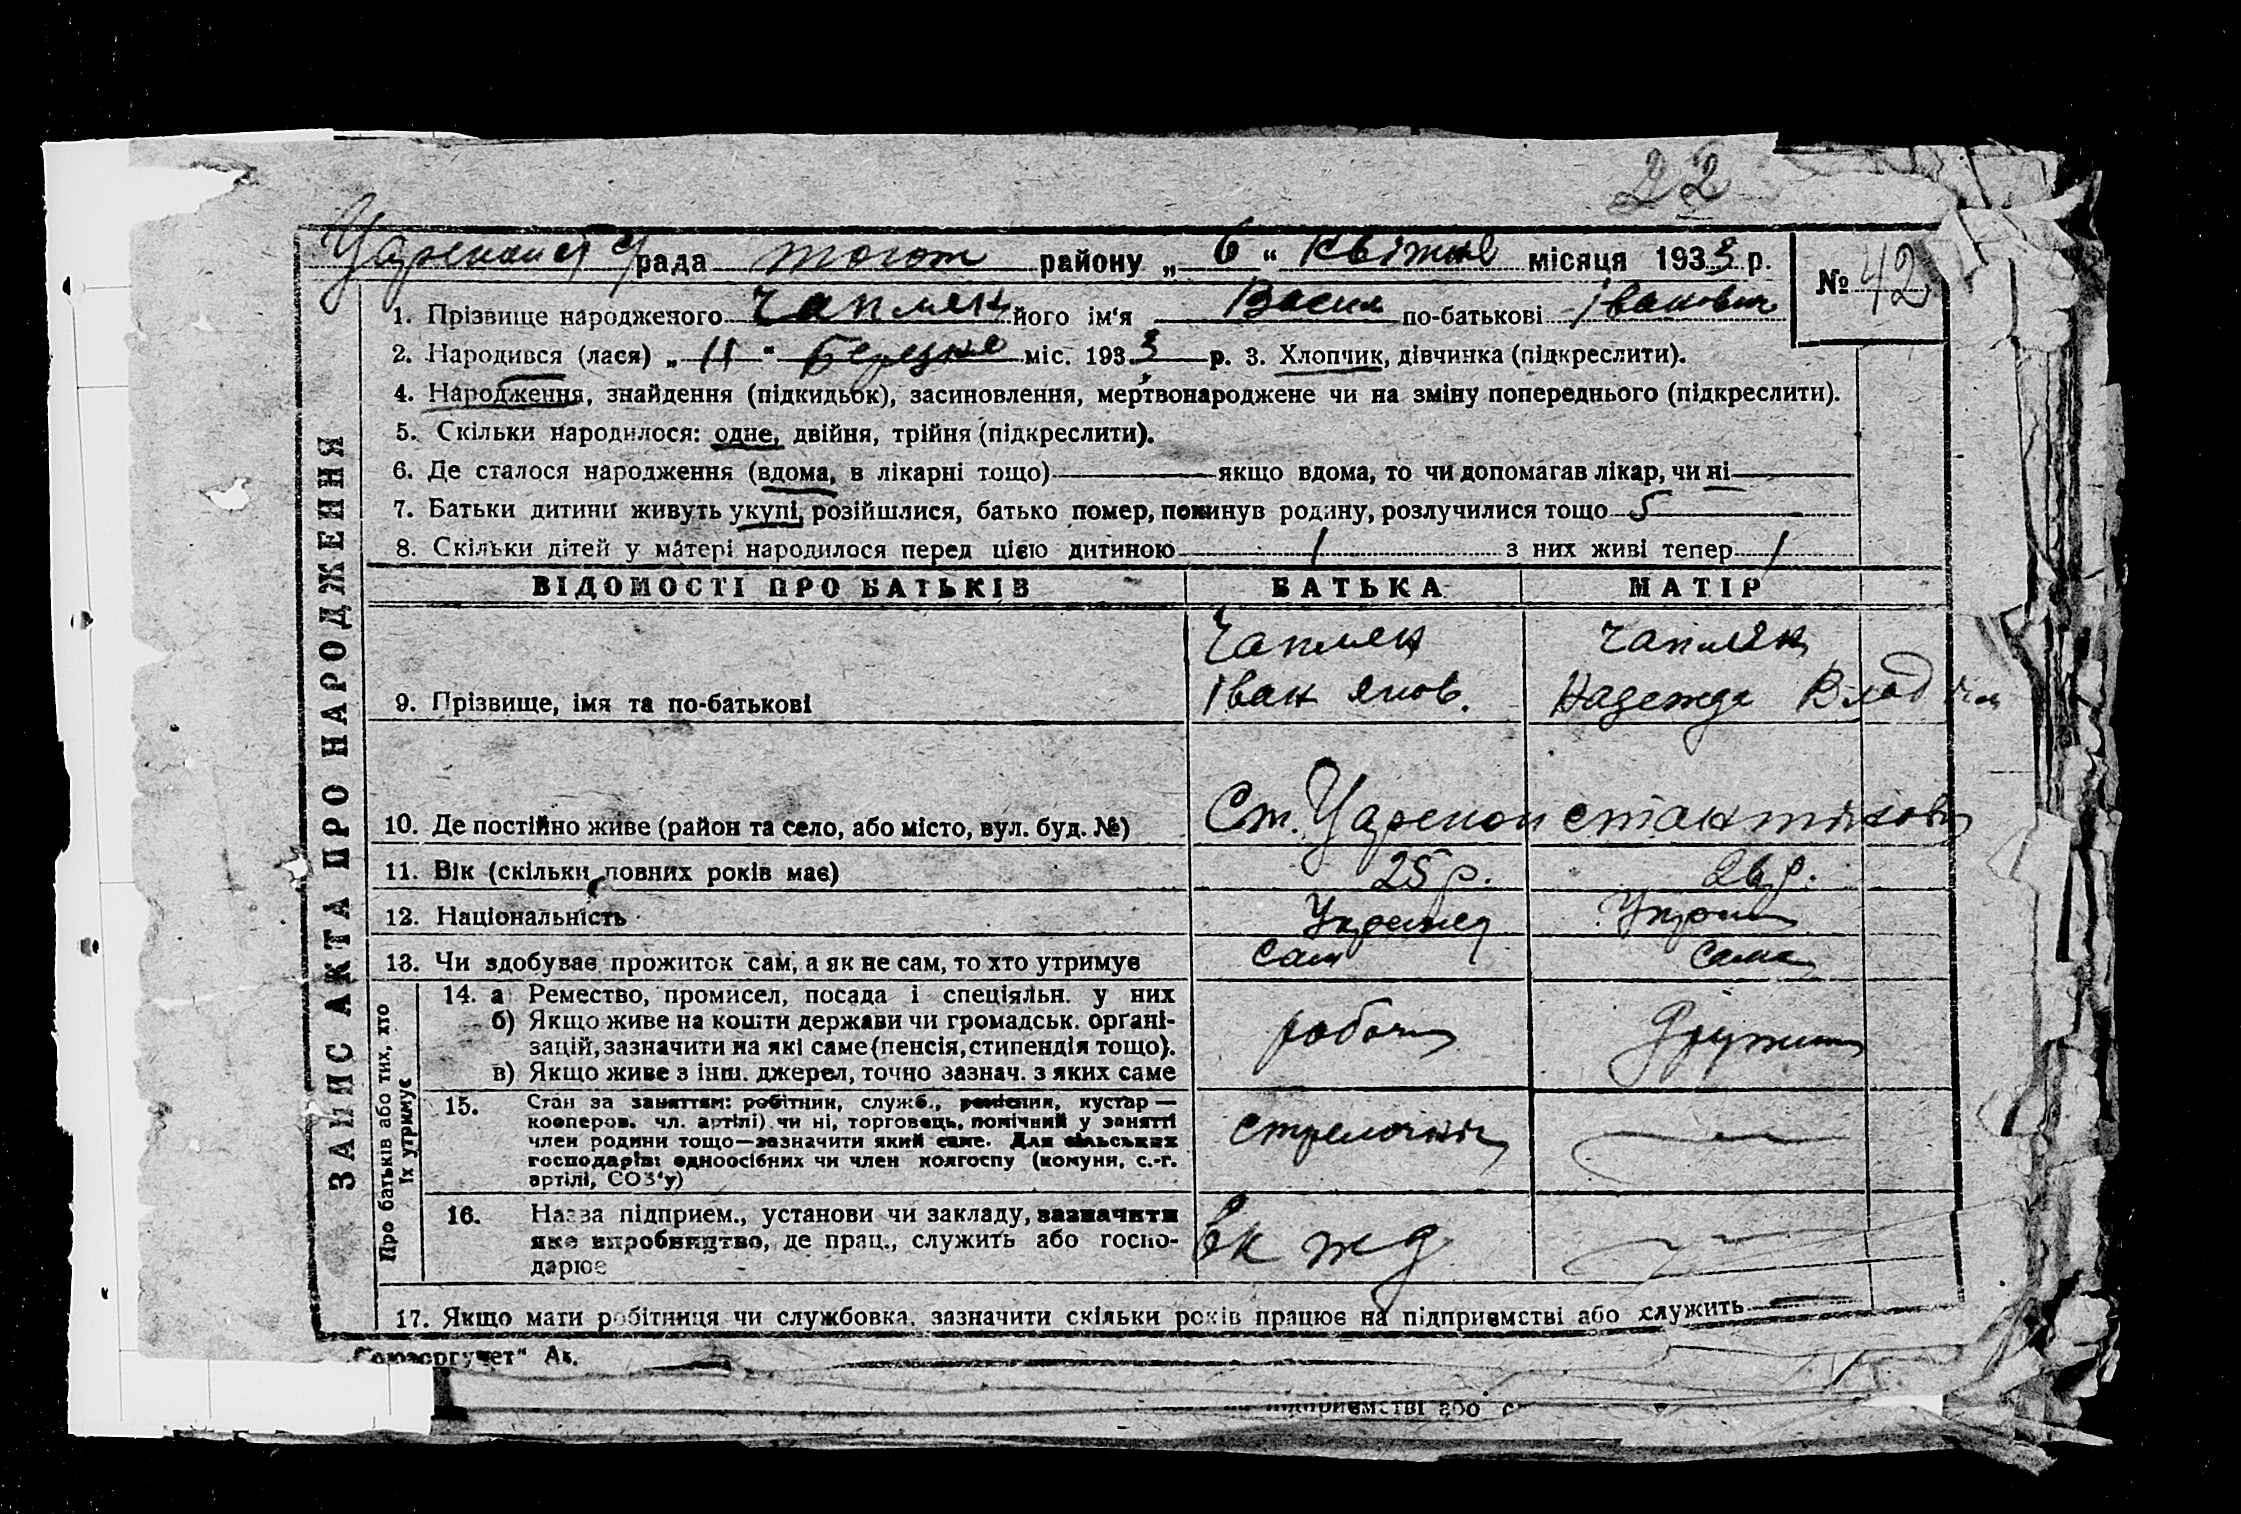 22
рада тогож району „ 6 “ Квітня місяця 1933 р.
№ 42
1. Прізвище народженого Чапляк його ім‘я Васил по-батькові Іванович
2. Народився (лася) „ 11 “ Березня міс. 1933 р. 3. Хлопчик, дівчинка (підкреслити).
4. Народження, знайдення (підкидьок), засиновлення, мертвонароджене чи на зміну попереднього (підкреслити).
5. Скільки народилося: одне, двійня, трійня (підкреслити).
6. Де сталося народження (вдома, в лікарні тощо) якщо вдома, то чи допомагав лікар, чи ні
7. Батьки дитини живуть укупі, розійшлися, батько помер, покинув родину, розлучилися тощо 5
8. Скільки дітей у матері народилося перед цією дитиною 1 з них живі тепер 1
ЗАПИС АКТА ПРО НАРОДЖЕННЯ
ВІДОМОСТІ ПРО БАТЬКІВ БАТЬКА МАТІР
Чапляк Чапляк
9. Прізвище, імя та по-батькові Іван Яков. Надежда Влад
10. Де постійно живе (район та село, або місто, вул. буд. №) Ст.
11. Вік (скільки повних років має) 25 р. 26 р.
12. Національність
13. Чи здобуває прожиток сам, а як не сам, то хто утримує сам сама
Про батьків або тих, хто
їх утримує
14. а Ремество, промисел, посада і спеціяльн. у них
б) Якщо живе на кошти держави чи громадськ. орґані-
зацій, зазначити на які саме (пенсія, стипендія тощо).
в) Якщо живе з інш. джерел, точно зазнач. з яких саме
робочий
15. Стан за заняттям: робітник, служб., ремісник, кустар —
коопером. чл. артілі) чи ні, торговець, помічний у занятті
член родини тощо—зазначити який саме. Для сільських
господарів: одноосібних чи член колгоспу (комуни, с.-г.
артілі, СОЗ‘у)
стрелочник
16. Назва підприєм., установи чи закладу, зазначити
яке виробництво, де прац., служить або госпо-
дарює
ж д
17. Якщо мати робітниця чи службовка, зазначити скільки років працює на підприємстві або служить
"Союзоргучет" Ак.
підприємстві або с